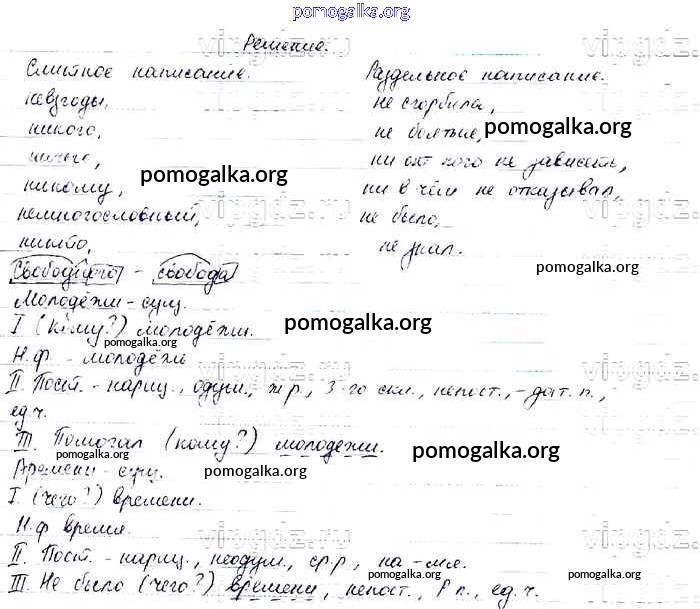 pomogalka.org
Решение.
Слитное написание.
невзгоды,
никого,
ничего,
никому,
немногословный,
Раздельное написание.
не сгорбила,
не болтые,
ни от кого не зависеть,
ни в чём не отказывал,
не было,
не знал.
pomogalka.org
pomogalka.org
pomogalka.org
Свободного - свобода
Молодёжи - сущ.
I (кому?) молодёжи.
pomogalka.org
Н.ф. - молодёжь
II. Пост. - нариц., одуш., ж.р., 3-го скл., непост., - дат. п.,
ед.ч.
III. Помогал (кому?) молодёжи.
pomogalka.org
pomogalka.org
Времени - сущ.
pomogalka.org
I. (чего?) времени.
Н.ф время.
II. Пост. - нариц., неодуш., ср.р, на -мя.
III. Не было (чего?) времени, непост., Р п., ед.ч.
pomogalka.org
pomogalka.org
vingdz.ru
vingdz.ru
vingdz.ru
vingdz.ru